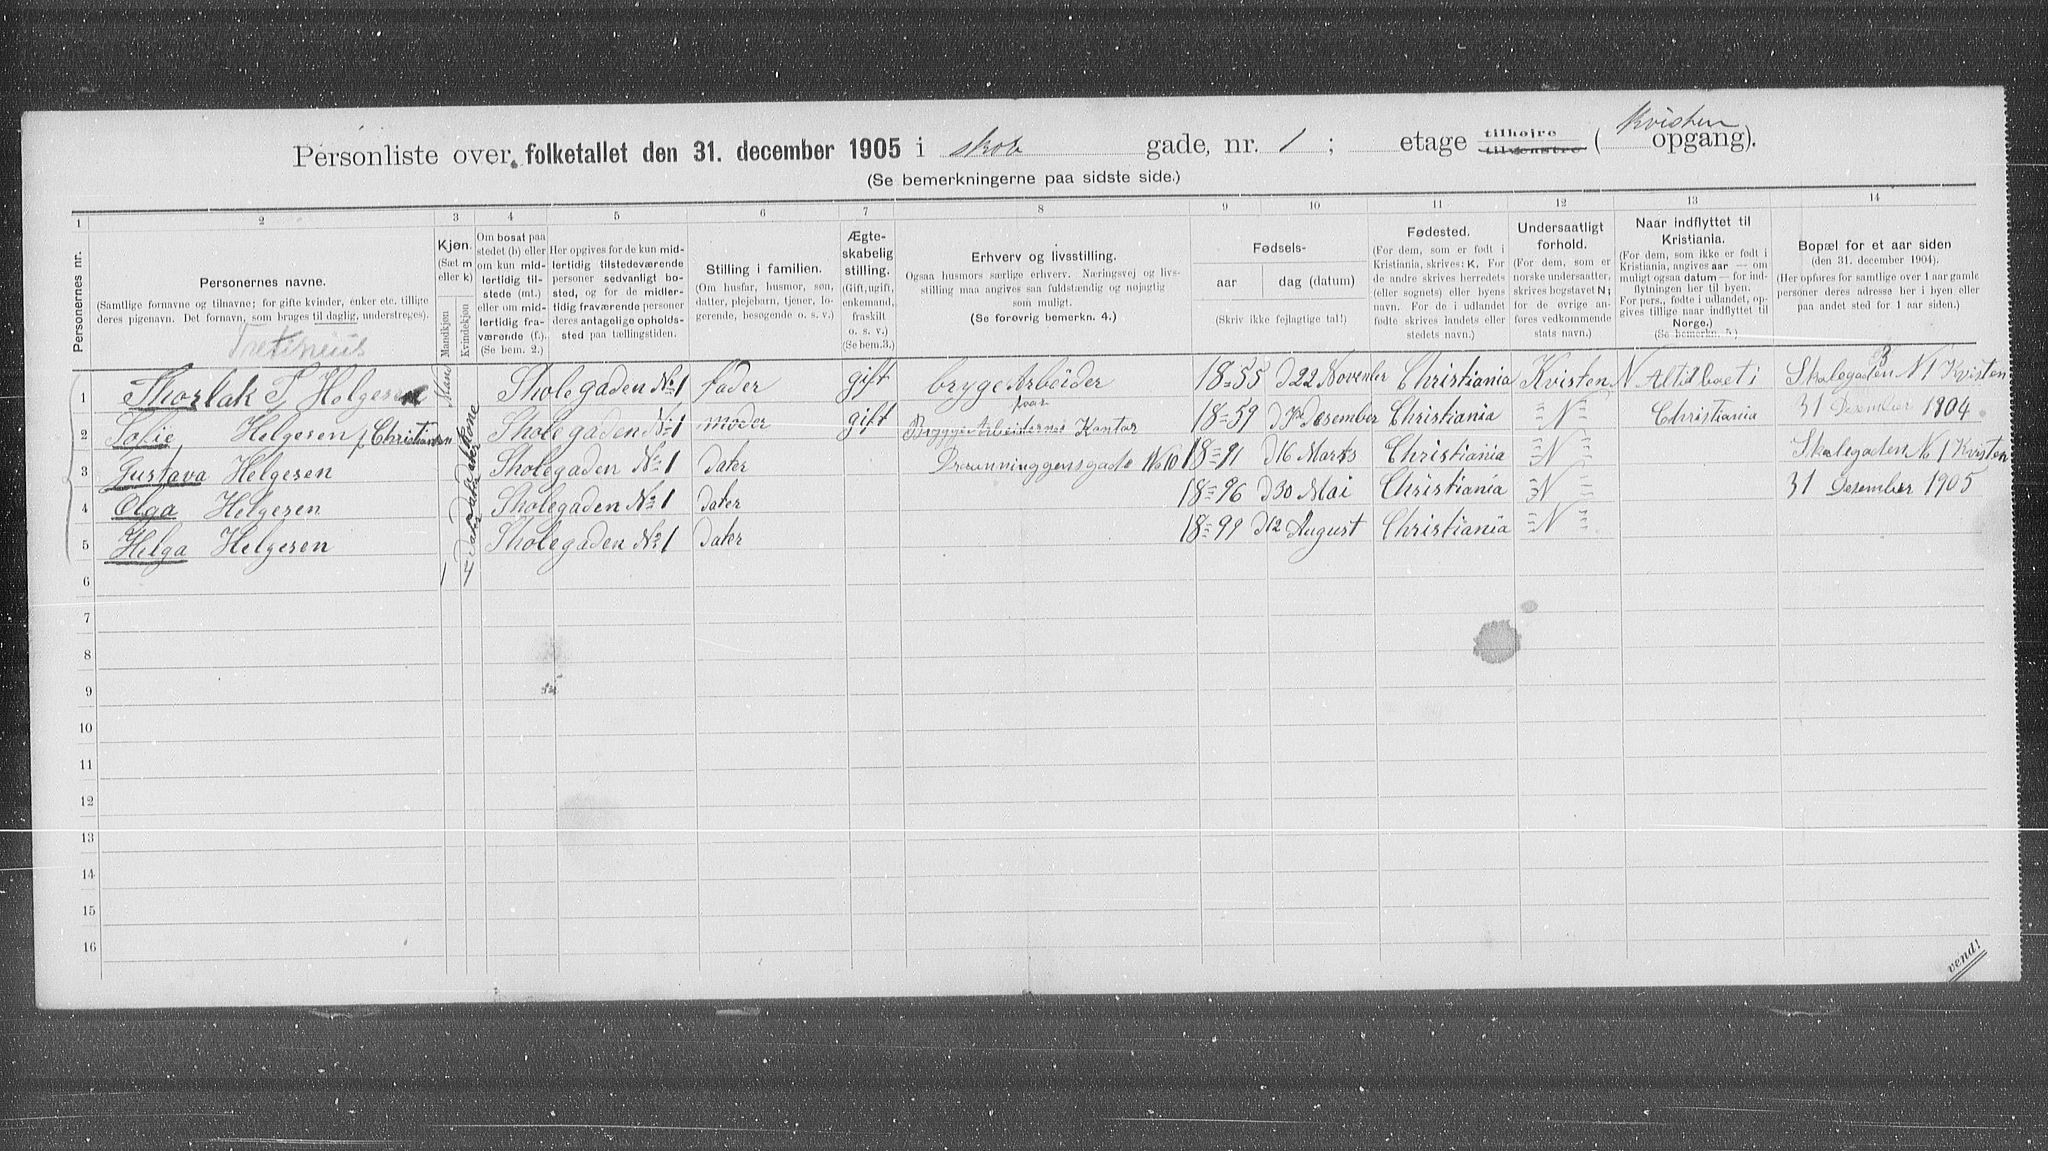 Personliste over folketallet den 31. december 1905 i Skole gade, nr. 1 ; etage tilhøjre tilvenstre ( Kvisten opgang).
(Se bemerkningerne paa sidste side.)
1 2 3 4 5 6 7 8 9 10 11 12 13 14
Personernes nr.
Personernes navne.
(Samtlige fornavne og tilnavne; for gifte kvinder, enker etc. tillige
deres pigenavn. Det fornavn, som bruges til daglig, understreges).
Kjøn.
(Sæt m
eller k)
Mandkjøn
Kvindekjøn
Om bosat paa
stedet (b) eller
om kun mid-
lertidig til-
stede (mt.)
eller om mid-
lertidig fra-
værende (f.).
(Se bem. 2.)
Her opgives for de kun mid-
lertidig tilstedeværende
personer sedvanligt bo-
sted, og for de midler-
tidig fraværende personer
deres antagelige opholds-
sted paa tællingstiden.
Stilling i familien.
(Om husfar, husmor, søn,
datter, plejebarn, tjener, lo-
gerende, besøgende o. s. v.)
Ægte-
skabelig
stilling.
(Gift, ugift,
enkemand,
fraskilt
o. s. v.)
(Se bem.3.)
Erhverv og livsstilling.
Ogsaa husmors særlige erhverv. Næringsvej og livs-
stilling maa angives saa fuldstændig og nøjagtig
som muligt.
(Se forøvrig bemerkn. 4.)
Fødsels-
aar dag (datum)
(Skriv ikke fejlagtige tal!)
Fødested.
(For dem, som er født i
Kristiania, skrives: K. For
de andre skrives herredets
(eller sognets) eller byens
navn. For de i udlandet
fødte skrives landets eller
stedets navn.)
Undersaatligt
forhold.
(For dem, som er
norske undersaatter,
skrives bogstavet N;
for de øvrige an-
føres vedkommende
stats navn.)
Naar indflyttet til
Kristiania.
(For dem, som ikke er født i
Kristiania, angives aar — om
muligt ogsaa datum — for ind-
flytningen her til byen.
For pers., fødte i udlandet, op-
gives tillige naar indflyttet til
Norge.)
(Se bemerkn. 5.)
Bopæl for et aar siden
(den 31. december 1904).
(Her opføres for samtlige over 1 aar gamle
personer deres adresse her i byen eller
paa andet sted for 1 aar siden.)
1 Thorlak T Helgesen Skolegaden No 1 fader gift brygeArbeider 18=55 d 22 November Christiania Kvisten N Altid boet i Skolegaden N 1 Kvisten
2 Sofie Helgesen f Christiansen Skolegaden No 1 moder gift BryggeArbeidernes Kontor 18=59 Desember Christiania = N = Christiania 31 Desember 1904.
3 Gustava Helgesen Skolegaden No 1 dater Dronninggensgade No 10 18=91 d 16 Marts Christiania = N = Skolegaden N 1 Kvisten
4 Olga Helgesen Skolegaden No 1 dater 18=96 d 30 Mai Christiania = N = 31 Desember 1905
5 Helga Helgesen Skolegaden No 1 dater 18=99 d 12 August Christiania = N =
6
7
8
9
10
11
12
13
14
15
16
vend!